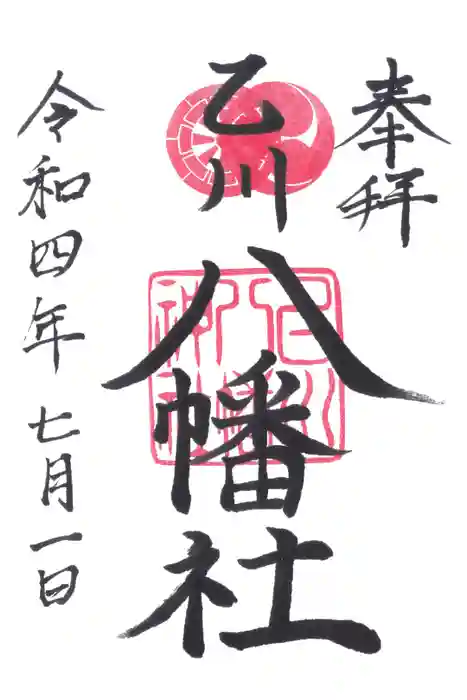 奉拝
乙川
八幡社
令和四年七月一日